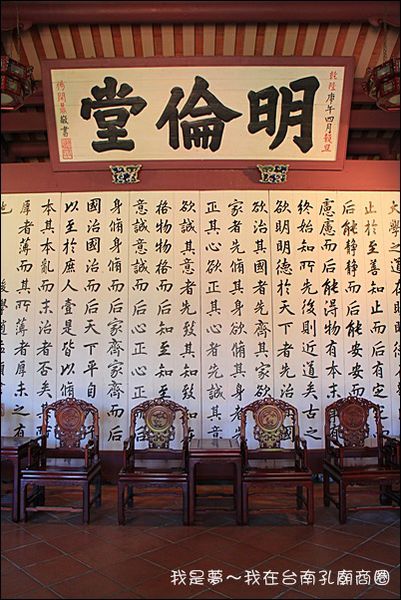 明倫堂
乾隆庚午四月穀旦
敬書
大學之道在明明德在
止於至善知止而后有定
后能靜靜而后能安安而
慮慮而后能得物有本末
終始知所先後則近道矣古之
欲明明德於天下者先治
欲治其國者先齊其家欲
家者先脩其身欲脩其身
正其心欲正其心者先誠其意
欲誠其意者先致其知致知
格物物格而后知至知至而后
意誠意誠而后心正心正而
身脩身脩而后家齊家齊而后
國治國治而后天下平自
以至於庶人壹是皆以脩
本其本亂而末治者否矣
厚者薄而其所薄者厚未之有
也
我是夢～我在台南孔廟商圈